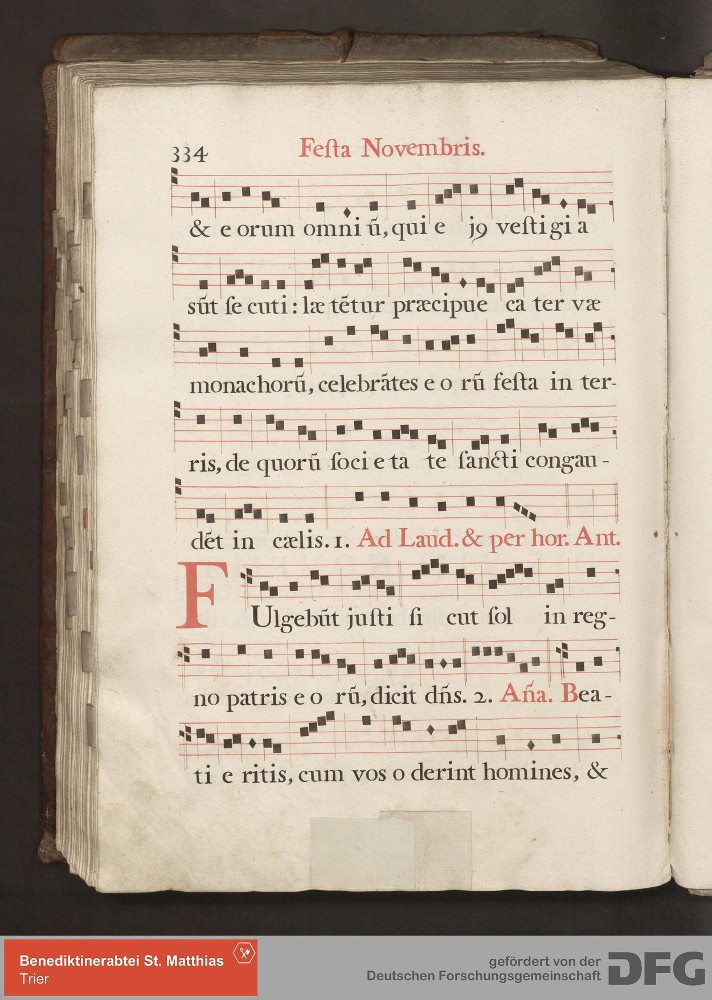 334 Feſta Novembris.
& e orum omni ũ, qui e j9 veſti gi a
sũt ſe cuti : læ tẽtur præcipue ca ter væ
monachorũ, celebrãtes e o rũ feſta in ter-
ris, de quorũ ſoci e ta te ſancti congau-
dẽt in cælis. 1. Ad Laud. & per hor. Ant.
FUlgebũt juſti ſi cut ſol in reg-
no patris e o rũ, dicit dñs. 2. Aña. Bea-
ti e ritis, cum vos o derint homines, &
Benediktinerabtei St. Matthias
Trier
gefördert von der
Deutschen Forschungsgemeinschaft
DFG